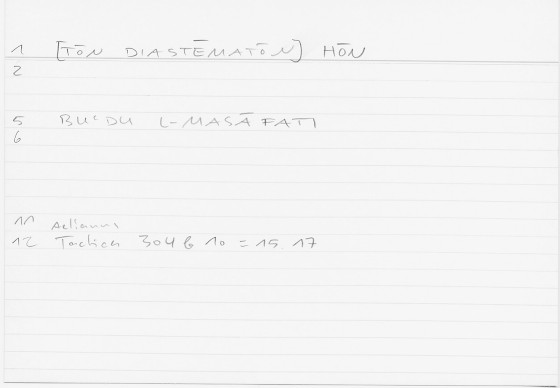 1 [TŌN DIASTĒMATŌN] HŌN
2
5 BUʿDU L-MASĀFATI
6
11 Aelianus
12 Tactica 304 b 10 = 15. 17